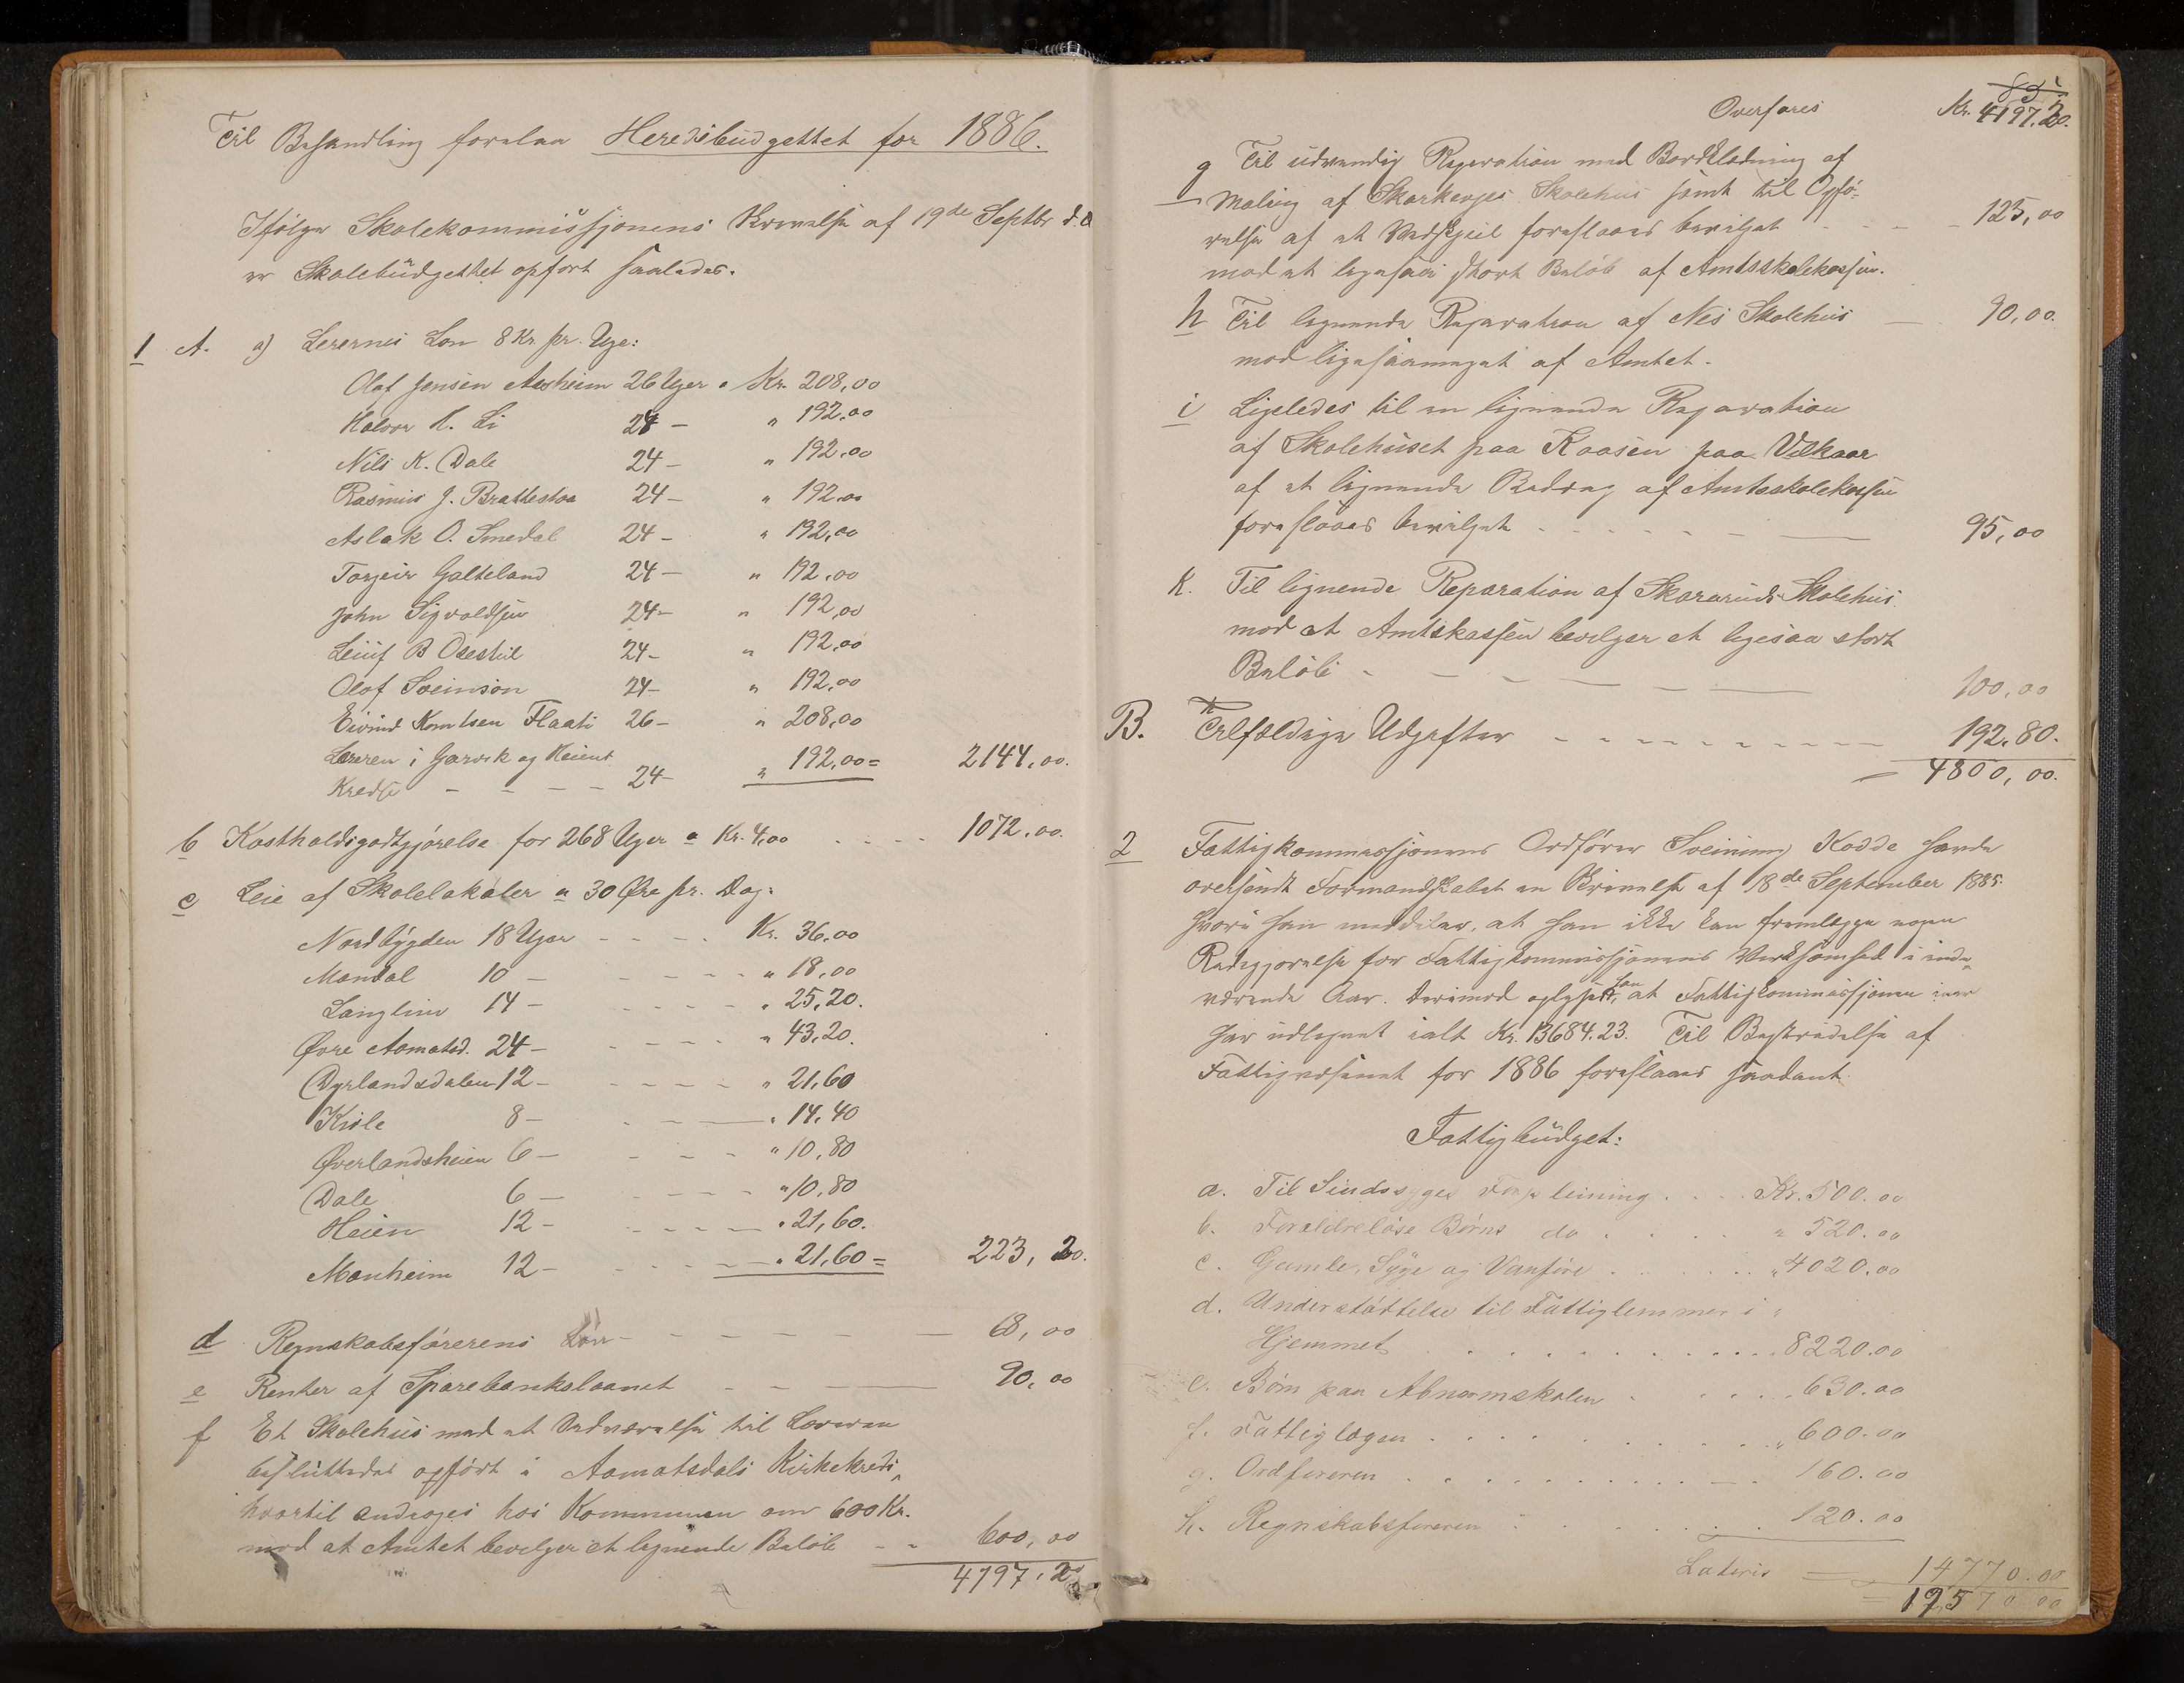 Til Behandling forelaa Heredsbudgettet for 1886.
Ifølge Skolekommissjonens Skrivelse af 19de Septbr d. a
er Skolebudgettet opført saaledes.
1 A. a) Lerernes Løn 8 Kr pr. Uge:
Olaf Jensen Aasheim 26 Uger a Kr. 208,00
Halvor H. Li 24 — " 192,00
Nils K. Dale 24 — " 192,00
Rasmus J. Brattestaa 24 — " 192,00
Aslak O. Smedal 24 — " 192,00
Torgeir Galteland 24 — " 192,00
John Sigvaldsen 24 — " 192,00
Leiuf B Odestul 24 — " 192,00
Olaf Sveinson 24 — " 192,00
Eivind Komtsen Flaati 26 — " 208,00
Læreren i Garvik og Heiens
Kredse — — — — 24 — " 192,00 = 2144,00.
b Kostholdsgodtgjørelse for 268 Uger a Kr. 4,00 . . . . 1072,00.
c Leie af Skolelokaler a 30 Øre pr. Dag:
Nordbygden 18 Uger — — — . Kr. 36,00
Mandal 10 — — — — — " 18,00
Langlim 14 — — — — — " 25,20.
Øvre Aamotsd. 24 — — — — — " 43,20.
Dyrlandsdalen 12 — — — — — " 21,60
Kisle 8 — — — " 14,40
Øverlandsheien 6 — — — — " 10,80
Dale 6 — — — — " 10,80
Heien 12 — — — — " 21,60.
Manheim 12 — — — — " 21,60 = 223,20.
d Regnskabsførerens Løn — — — — — — 68,00
e Renter af Sparebankslaanet — — — 90,00
f Et Skolehus med et Værelse til Læreren
besluttedes opført i Aamotsdals Kirkekreds,
hvortil andrages hos Kommunen om 600 Kr.
mod at Amtet bevilger et lignende Beløb — - 600,00
4197,20
Overføres Kr. 4197,20.
g Til udvendig Reparation med Bordklædning af
Maling af Skarkenges Skolehus samt til Opfø-
relse af et Vedskjul foreslaaes bevilget - - - - 125,00
mod et ligesaa stort Beløb af Amtsskolekassen.
h Til lignende Reparation af Nes Skolehus — 90,00.
mod ligesaameget af Amtet.
i Ligeledes til en lignende Reparation
af Skolehuset paa Kaasen paa Vilkaar
af et lignende Bidrag af Amtsskolekassen
foreslaaes bevilget - - - - - - — 95,00
k. Til lignende Reparation af Skareruds Skolehus
mod at Amtskassen bevilger et ligesaa stort
Beløb - — — — — — 100,00
B. Tilfældige Udgifter - - - - - - - - - 192,80.
= 4800,00.
2 Fattigkommissjonens Ordfører Sveinung Kodde havde
oversendt Formandskabet en Skrivelse af 18de September 1885.
hvori han meddeler, at han ikke kan fremlægge nogen
Redegjørelse for Fattigkommissjonens Virksomhed i inde-
værende Aar. Derimod oplyser han, at Fattigkommissjonen iaar
har udlignet ialt Kr. 13684.23. Til Bestridelse af
Fattigvæsenet for 1886 foreslaaes saadant
Fattigbudget:
a. Til Sindssyges Forpleining . . . . Kr. 500.00
b. Forældreløse Børns do . . . . " 520.00
c. Gamle, Syge og Vanføre . . . . . " 4020.00
d. Understøttelse til Fattiglemmer i "
Hjemmet . . . . . . . . . . . 8220.00
e. Børn paa Abnormskolen . . . . . 630.00
f. Fattiglægen . . . . . . . . . . " 600.00
g. Ordføreren . . . . . . . . . . — . 160.00
h. Regnskabsføreren . . . . . . . . 120.00
Lateris = 14770.00
= 12570 00